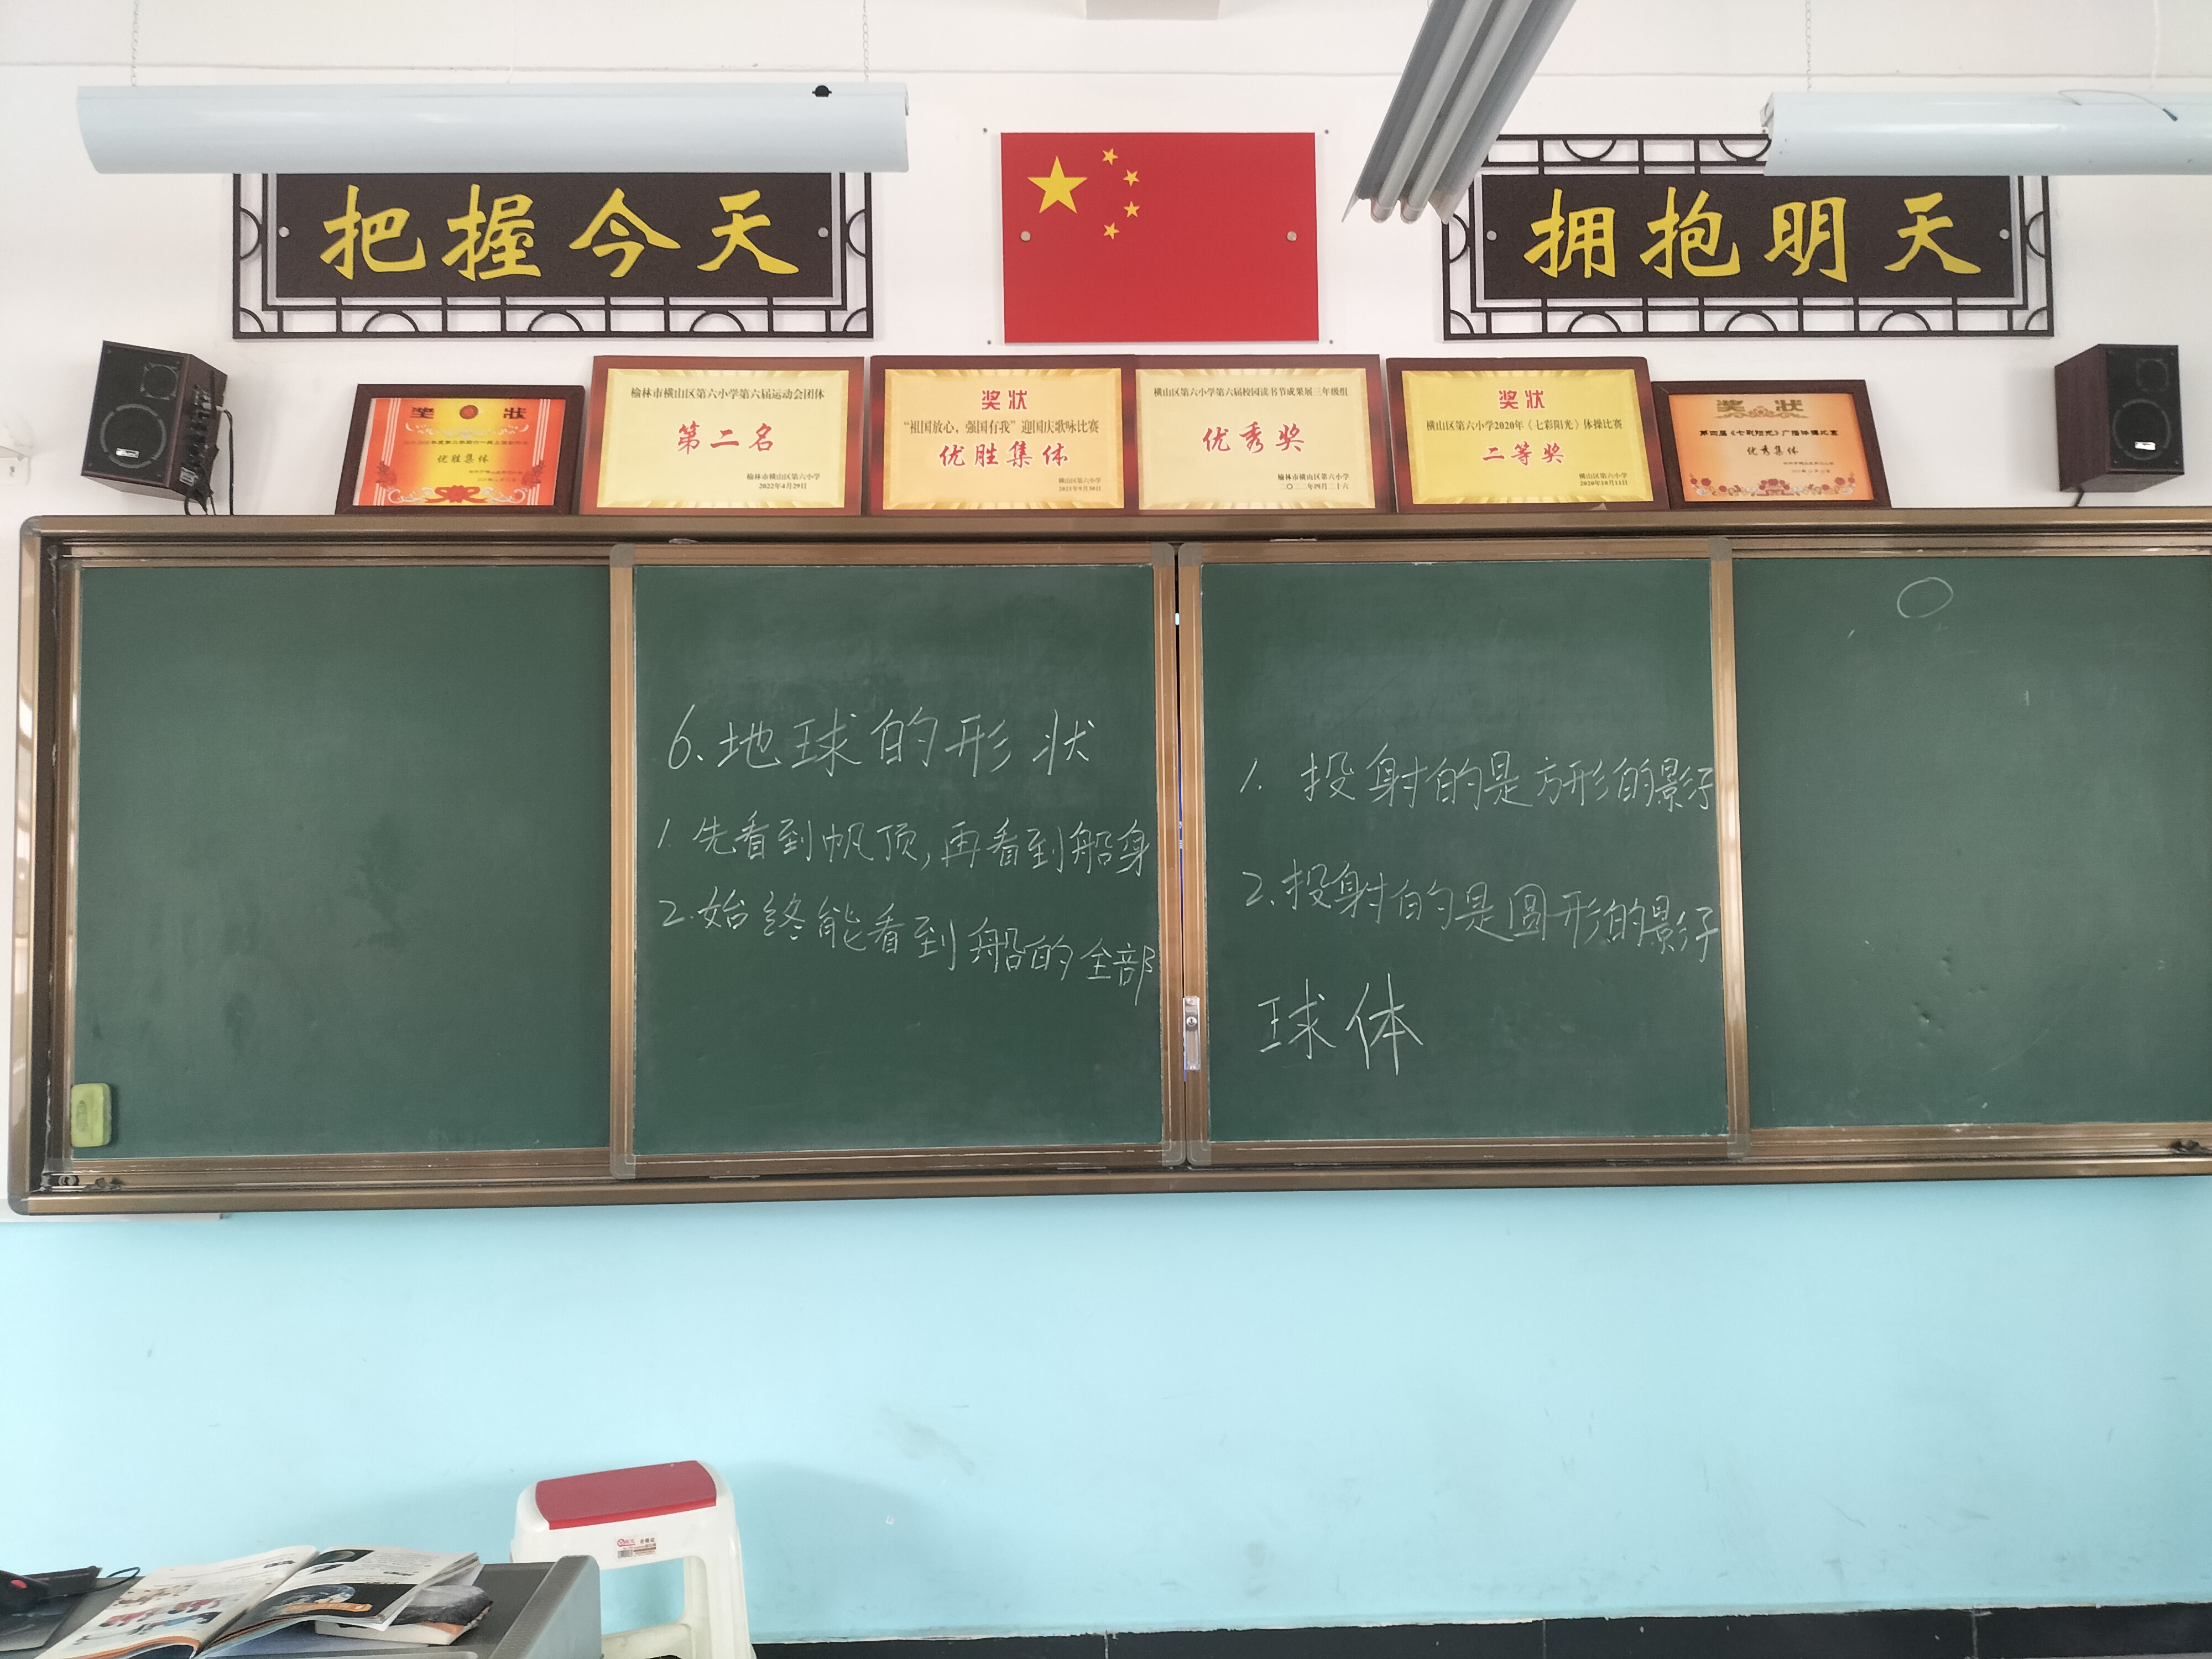 把握今天
拥抱明天
奖状
优胜集体
榆林市横山区第六小学第六届运动会团体
第二名
榆林市横山区第六小学
2022年4月29日
奖状
“祖国放心，强国有我”迎国庆歌咏比赛
优胜集体
横山区第六小学
2021年9月30日
横山区第六小学第六届校园读书节成果展三年级组
优秀奖
榆林市横山区第六小学
奖状
横山区第六小学2020年《七彩阳光》体操比赛
二等奖
横山区第六小学
2020年10月11日
奖状
第四届《七彩阳光》广播体操比赛
优秀集体
6、地球的形状
1. 先看到帆顶，再看到船身
2. 始终能看到船的全部
1. 投射的是方形的影子
2. 投射的是圆形的影子
球体